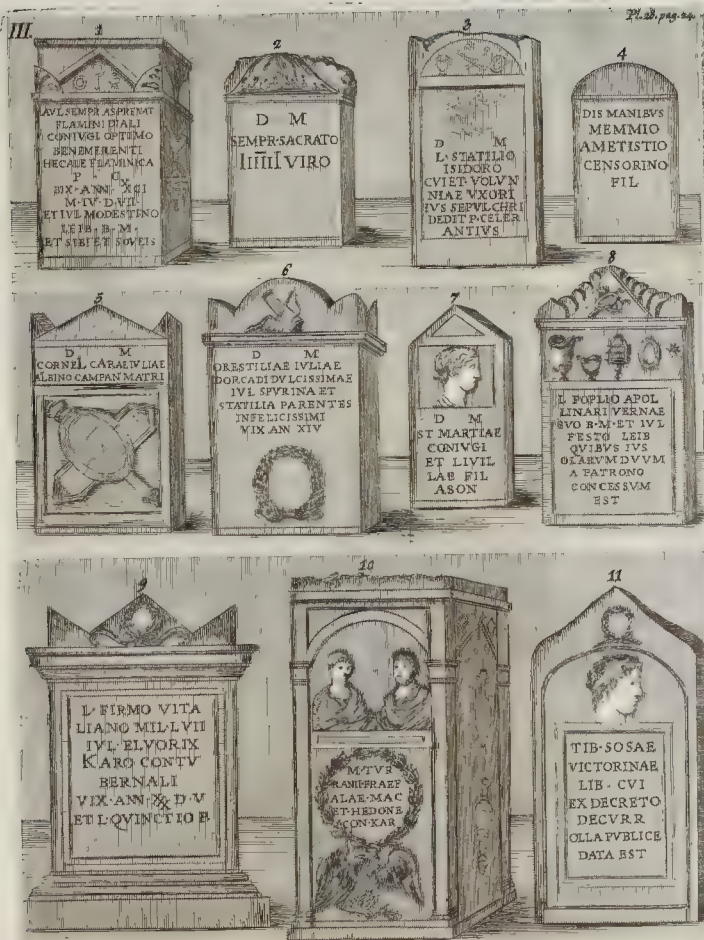 III.
Pl. 28. pag. 24.
1
AVL SEMPR ASPRENAT
FLAMINI DIALI
CONIVGI OPTIMO
BENEMERENTI
HECALE FLAMINICA
P · C
BIX · ANN · XCI
M · IV · D · VII
ET IVL MODESTINO
LEIB · B · M ·
ET SIBI ET SOVEIS
2
D M
SEMPR · SACRATO
IIIIII VIRO
3
D M
L · STATILIO
ISIDORO
CVI ET · VOLVN
NIAE VXORI
IVS SEPVLCHRI
DEDIT P · CELER
ANTIVS
4
DIS MANIBVS
MEMMIO
AMETISTIO
CENSORINO
FIL
5
D M
CORNEL CARAE IVLIAE
ALBINO CAMPAN MATRI
6
D M
ORESTILIAE IVLIAE
DORCADI DVLCISSIMAE
IVL SPVRINA ET
STATILIA PARENTES
INFELICISSIMI
VIX AN XIV
7
D M
ST MARTIAE
CONIVGI
ET LIVIL
LAE FIL
ASON
8
L POPLIO APOL
LINARI VERNAE
SVO B · M · ET IVL
FESTO LEIB
QVIBVS IVS
OLARVM DVVM
A PATRONO
CONCESSVM
EST
9
L · FIRMO VITA
LIANO MIL · L VII
IVL · ELVORIX
KARO CONTV
BERNALI
VIX · ANN · XX D · V
ET L · QVINCTIO F
10
M · TVR
RANII · FRAEF
ALAE · MAC
ET · HEDONE
CON · KAR
11
TIB · SOSAE
VICTORINAE
LIB · CVI
EX DECRETO
DECVRR
OLLA PVBLICE
DATA EST